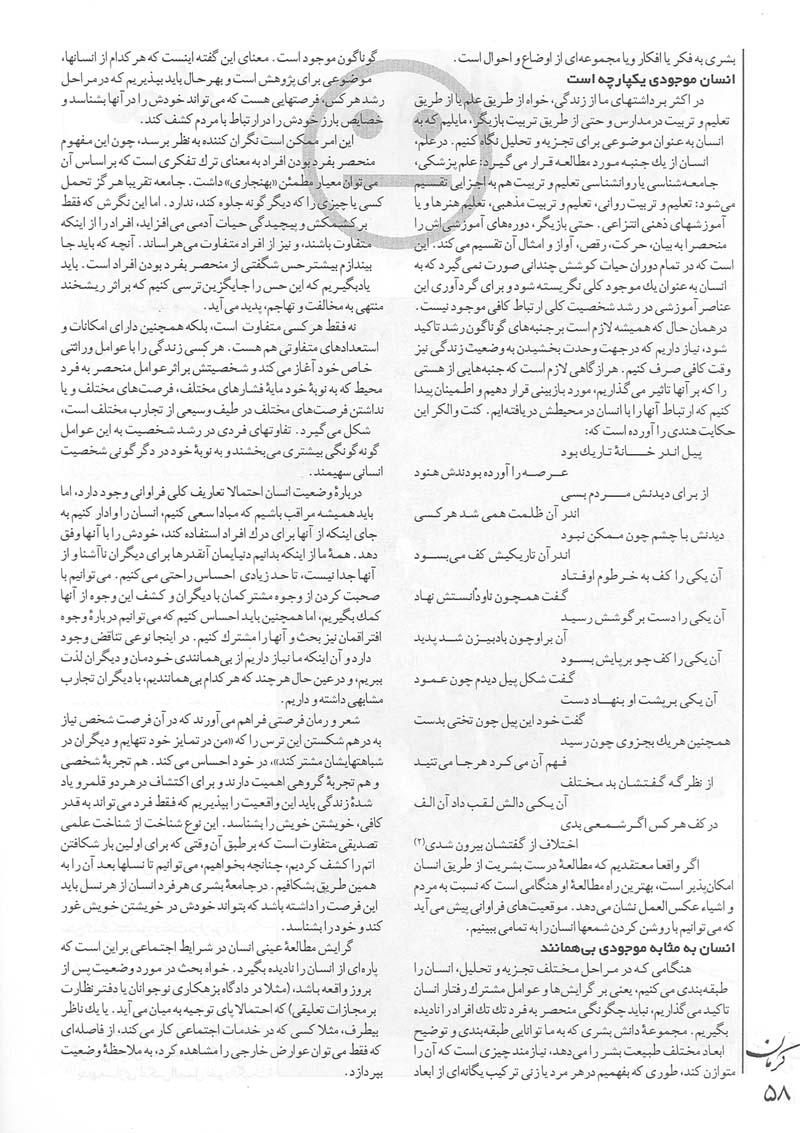 بشری به فکر یا افکار ویا مجموعه‌ای از اوضاع و احوال است.
انسان موجودی یکپارچه است
در اکثر برداشتهای ما از زندگی، خواه از طریق علم یا از طریق
تعلیم و تربیت در مدارس و حتی از طریق تربیت بازیگر، مایلیم که به
انسان به عنوان موضوعی برای تجزیه و تحلیل نگاه کنیم. درعلم،
انسان از یك جنبه مورد مطالعه قرار می گیرد: علم پزشکی،
جامعه‌شناسی یا روانشناسی تعلیم و تربیت هم به اجزایی تقسیم
می‌شود: تعلیم و تربیت روانی، تعلیم و تربیت مذهبی، تعلیم هنرها و یا
آموزشهای ذهنی انتزاعی. حتی بازیگر، دوره‌های آموزشی‌اش را
منحصر ا به بیان، حرکت، رقص، آواز و امثال آن تقسیم می کند. این
است که در تمام دوران حیات کوشش چندانی صورت نمی گیرد که به
انسان به عنوان یك موجود کلی نگریسته شود و برای گردآوری این
عناصر آموزشی در رشد شخصیت کلی ارتباط کافی موجود نیست.
درهمان حال که همیشه لازم است بر جنبه‌های گوناگون رشد تاکید
شود، نیاز داریم که درجهت وحدت بخشیدن به وضعیت زندگی نیز
وقت کافی صرف کنیم. هر ازگاهی لازم است که جنبه‌هایی از هستی
را که بر آنها تاثیر می‌گذاریم، مورد بازبینی قرار دهیم و اطمینان پیدا
کنیم که ارتباط آنها را با انسان در محیطش دریافته‌ایم. کنت والکر این
حکایت هندی را آورده است که:
پیل اندر خـــانهٔ تاریك بود
عرصه را آورده بودندش هنود
از برای دیدنش مـــردم بسی
اندر آن ظلمت همی شد هر کسی
دیدنش با چشم چون ممکن نبود
اندر آن تاریکیش کف می‌بسـود
آن یکی را کف به خرطوم اوفتـاد
گفت همچون ناودانستش نهاد
آن یکی را دست بر گوشش رسید
آن بر او چون بادبیزن شـد پدید
آن یکی را کف چو بر پایش بسود
گفت شکل پیل دیدم چون عمـود
آن یکی بر پشت او بنهـاد دست
گفت خود این پیل چون تختی بدست
همچنین هر یك بجزوی چون رسید
فهم آن می کرد هر جا می تنید
از نظر گه گفتشان بد مختلف
آن یکی دالش لقب داد آن الف
در کف هر کس اگر شمعی بدی
اختلاف از گفتشان بیرون شدی(۲)
اگر واقعا معتقدیم که مطالعهٔ درست بشریت از طریق انسان
امکان‌پذیر است، بهترین راه مطالعهٔ او هنگامی است که نسبت به مردم
و اشیاء عکس‌العمل نشان می‌دهد. موقعیت‌های فراوانی پیش می آید
که می توانیم با روشن کردن شمعها انسان را به تمامی ببینیم.
انسان به مثابه موجودی بی‌همانند
هنگامی که در مراحل مختلف تجزیه و تحلیل، انسان را
طبقه‌بندی می کنیم، یعنی بر گرایش‌ها و عوامل مشترك رفتار انسان
تاکید می گذاریم، نباید چگونگی منحصر به فرد تك تك افراد را نادیده
بگیریم. مجموعهٔ دانش بشری که به ما توانایی طبقه‌بندی و توضیح
ابعاد مختلف طبیعت بشر را می‌دهد، نیازمند چیزی است که آن را
متوازن کند، طوری که بفهمیم در هر مرد یا زنی ترکیب یگانه‌ای از ابعاد
گوناگون موجود است. معنای این گفته اینست که هر کدام از انسانها،
موضوعی برای پژوهش است و بهرحال باید بپذیریم که در مراحل
رشد هر کس، فرصتهایی هست که می تواند خودش را در آنها بشناسد و
خصایص بارز خودش را در ارتباط با مردم کشف کند.
این امر ممکن است نگران کننده به نظر برسد، چون این مفهوم
منحصر بفرد بودن افراد به معنای ترك تفکری است که بر اساس آن
می توان معیار مطمئن «بهنجاری» داشت. جامعه تقریبا هر گز تحمل
کسی یا چیزی را که دیگر گونه جلوه کند، ندارد. اما این نگرش که فقط
بر کشمکش و پیچیدگی حیات آدمی می‌افزاید، افراد را از اینکه
متفاوت باشند، و نیز از افراد متفاوت می‌هراساند. آنچه که باید جا
بیندازم بیشتر حس شگفتی از منحصر بفرد بودن افراد است. باید
یادبگیریم که این حس را جایگزین ترسی کنیم که بر اثر ریشخند
منتهی به مخالفت و تهاجم، پدید می آید.
نه فقط هر کسی متفاوت است، بلکه همچنین دارای امکانات و
استعدادهای متفاوتی هم هست. هر کسی زندگی را با عوامل وراثتی
خاص خود آغاز می کند و شخصیتش بر اثر عوامل منحصر به فرد
محیط که به نوبهٔ خود مایهٔ فشارهای مختلف، فرصت‌های مختلف و یا
نداشتن فرصت‌های مختلف در طیف وسیعی از تجارب مختلف است،
شکل می گیرد. تفاوتهای فردی در رشد شخصیت به این عوامل
گونه گونگی بیشتری می‌بخشند و به نوبهٔ خود در دگر گونی شخصیت
انسانی سهیمند.
دربارهٔ وضعیت انسان احتمالا تعاریف کلی فراوانی وجود دارد، اما
باید همیشه مراقب باشیم که مبادا سعی کنیم، انسان را وادار کنیم به
جای اینکه از آنها برای درك افراد استفاده کند، خودش را با آنها وفق
دهد. همهٔ ما از اینکه بدانیم دنیایمان آنقدرها برای دیگران ناآشنا و از
آنها جدا نیست، تا حد زیادی احساس راحتی می کنیم. می توانیم با
صحبت کردن از وجوه مشتر کمان با دیگران و کشف این وجوه از آنها
کمك بگیریم، اما همچنین باید احساس کنیم که می توانیم دربارهٔ وجوه
افتراقمان نیز بحث و آنها را مشترك کنیم. در اینجا نوعی تناقض وجود
دارد و آن اینکه ما نیاز داریم از بی‌همانندی خودمان و دیگران لذت
ببریم، و درعین حال هر چند که هر کدام بی‌همانندیم، با دیگران تجارب
مشابهی داشته و داریم.
شعر و رمان فرصتی فراهم می آورند که در آن فرصت شخص نیاز
به درهم شکستن این ترس را که «من در تمایز خود تنهایم و دیگران در
شباهتهایشان مشتر کند»، در خود احساس می کند. هم تجربهٔ شخصی
و هم تجربهٔ گروهی اهمیت دارند و برای اکتشاف در هر دو قلمرو یاد
شدهٔ زندگی باید این واقعیت را بپذیریم که فقط فرد می تواند به قدر
کافی، خویشتن خویش را بشناسد. این نوع شناخت از شناخت علمی
تصدیقی متفاوت است که بر طبق آن وقتی که برای اولین بار شکافتن
اتم را کشف کردیم، چنانچه بخواهیم، می توانیم تا نسلها بعد آن را به
همین طریق بشکافیم. در جامعهٔ بشری هر فرد انسان از هر نسل باید
این فرصت را داشته باشد که بتواند خودش در خویشتن خویش غور
کند و خود را بشناسد.
گرایش مطالعهٔ عینی انسان در شرایط اجتماعی بر این است که
پاره‌ای از انسان را نادیده بگیرد. خواه بحث در مورد وضعیت پس از
بروز واقعه باشد، (مثلا در دادگاه بزهکاری نوجوانان یا دفتر نظارت
بر مجازات تعلیقی) که احتمالا پای توجیه به میان می آید. یا یك ناظر
بیطرف، مثلا کسی که در خدمات اجتماعی کار می کند، از فاصله‌ای
که فقط می توان عوارض خارجی را مشاهده کرد، به ملاحظهٔ وضعیت
بپردازد.
کرمان
۵۸